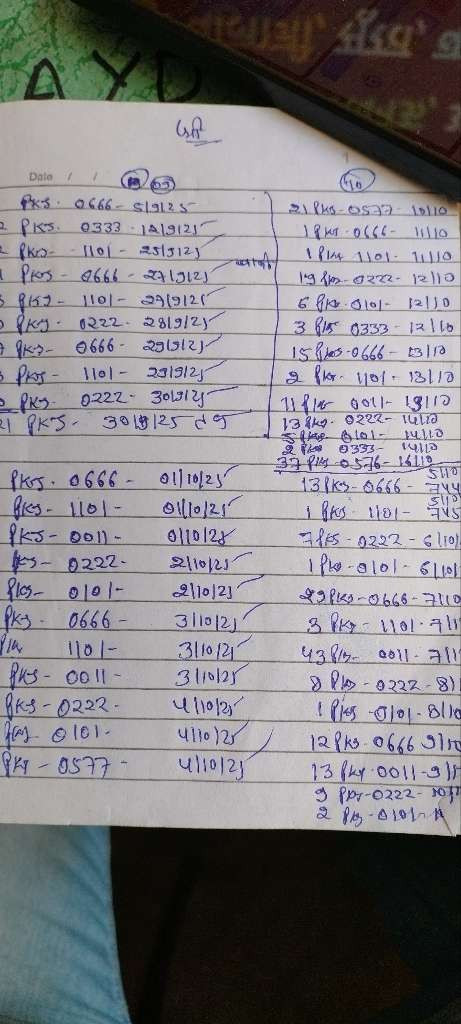 AYD
Date / /
09
10
PKS - 0666 - 5/9/25
PKS - 0333 - 12/9/25
PKS - 1101 - 25/9/25
PKS - 0666 - 27/9/25
PKS - 1101 - 27/9/25
PKS - 0222 - 28/9/25
PKS - 0666 - 29/9/25
PKS - 1101 - 29/9/25
PKS 0222 - 30/9/25
21 PKS - 30/9/25
PKS - 0666 - 01/10/25
PKS - 1101 - 01/10/25
PKS - 0011 - 01/10/25
PKS - 0222 - 2/10/25
PKS - 0101 - 2/10/25
PKS - 0666 - 3/10/25
PKS 1101 - 3/10/25
PKS - 0011 - 3/10/25
PKS - 0222 - 4/10/25
PKS - 0101 - 4/10/25
PKS - 0577 - 4/10/25
21 PKS - 0577 - 10/10
1 PKS - 0666 - 11/10
1 PKS 1101 - 11/10
19 PKS - 0222 - 12/10
6 PKS - 0101 - 12/10
3 PKS 0333 - 12/10
15 PKS - 0666 - 13/10
2 PKS - 1101 - 13/10
11 PKS - 0011 - 13/10
13 PKS - 0222 - 14/10
5 PKS - 0101 - 14/10
2 PKS 0333 - 14/10
37 PKS - 0576 - 16/10
13 PKS - 0666 - 5/10
1 PKS - 1101 - 5/10
7 PKS - 0222 - 6/10/
1 PKS - 0101 - 6/10/
29 PKS - 0666 - 7/10
3 PKS - 1101 - 7/1
43 PKS - 0011 - 7/1
8 PKS - 0222 - 8/1
1 PKS - 0101 - 8/10
12 PKS - 0666 9/1
13 PKS - 0011 - 9/1
9 PKS - 0222 -
2 PKS - 0101 -